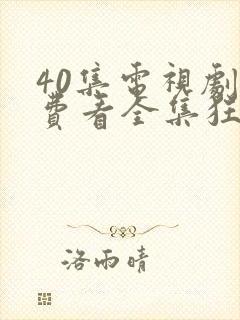 40集電視劇
費看全集狂
洛雨晴